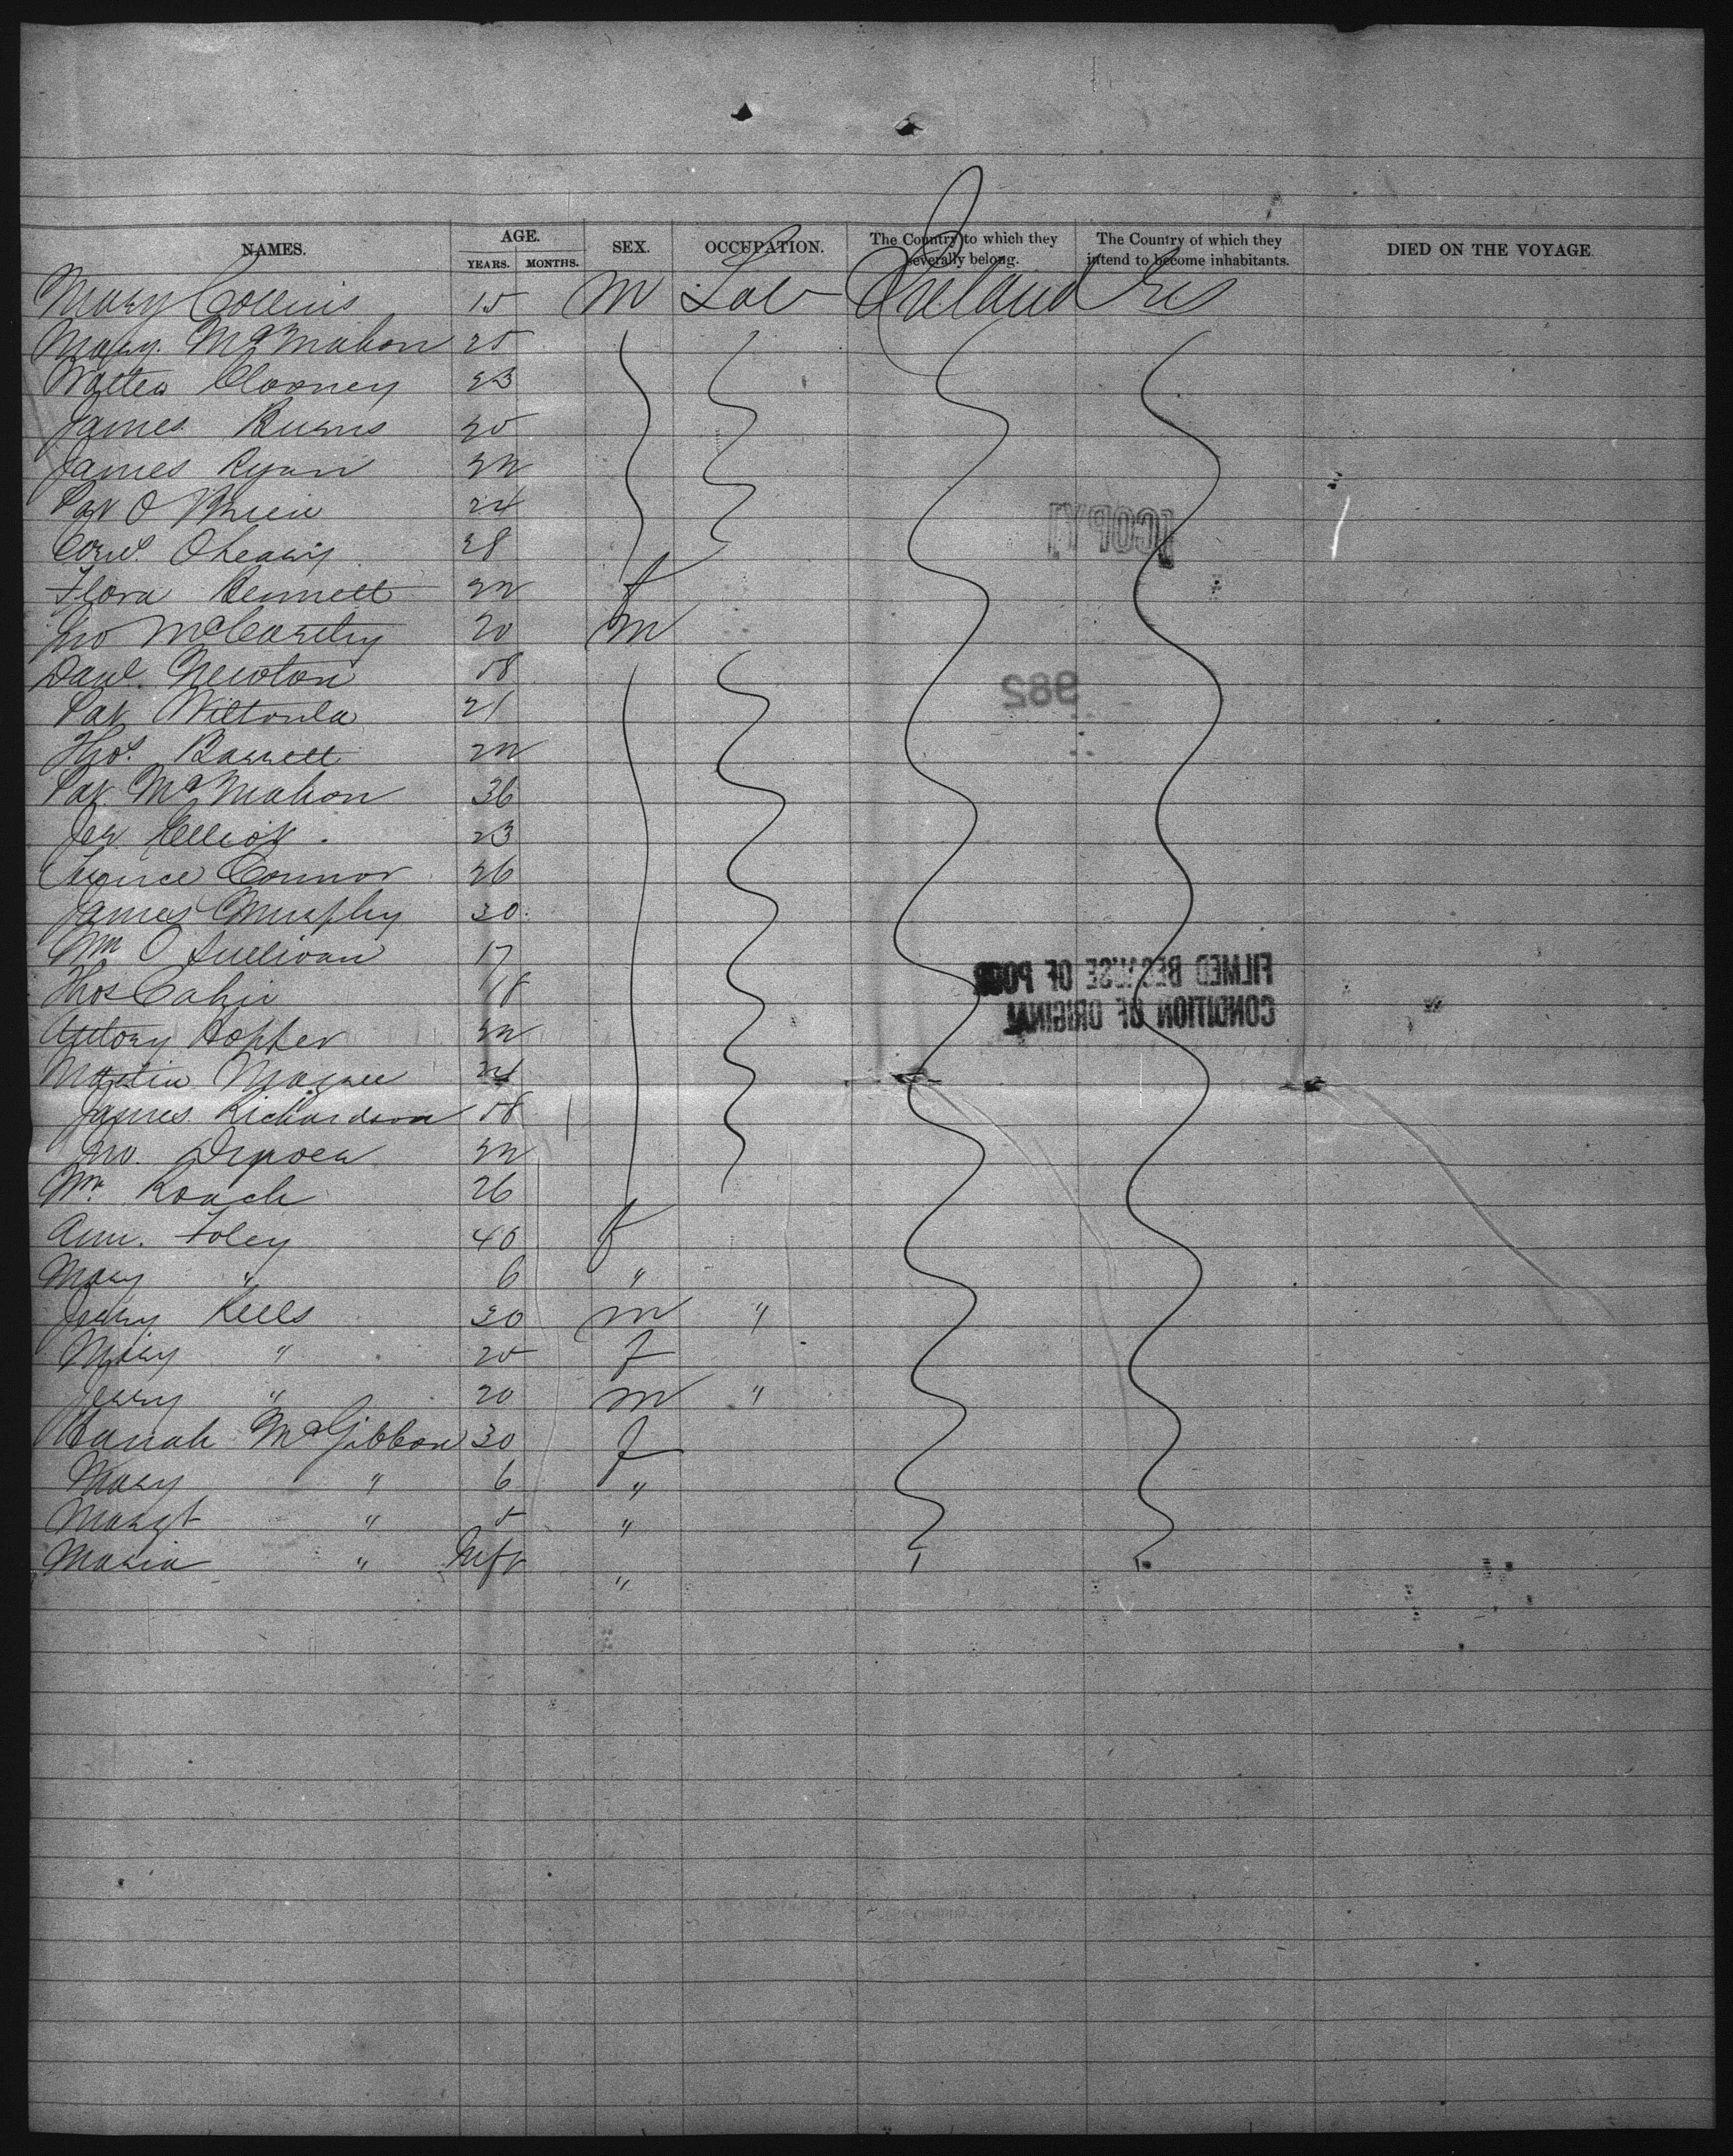 NAMES. AGE. YEARS. MONTHS. SEX. OCCUPATION. The Country to which they severally belong. The Country of which they intend to become inhabitants. DIED ON THE VOYAGE
Mary Collins 15 M Lab Ireland
Mary McMahon 25
Walter Clooney 23
James Burns 20
James Ryan 22
Pat O Brien 24
Corns. O Leary 28
Flora Bennett 22 f
Jno McCarthy 20 M
Danl. Newton 18
Pat 21
Thos. Barrett 22
Pat McMahon 36
Jer Elliot 23
Connor 26
James Murphy 30
Wm O Sullivan 17
Thos Cahir 18
Antony Hopper 22
Martin 24
James Richardson 18
Jno. 22
Wm. Roach 26
Ann. Foley 40 f
Mary " 6 "
Jerry Kells 30 M "
Mary " 20 f
Jerry " 20 M "
Hanah McGibbon 30 f
Mary " 6 "
Margt " 5 "
Maria " Inft "
[COPY]
982
FILMED BECAUSE OF POOR
CONDITION OF ORIGINAL